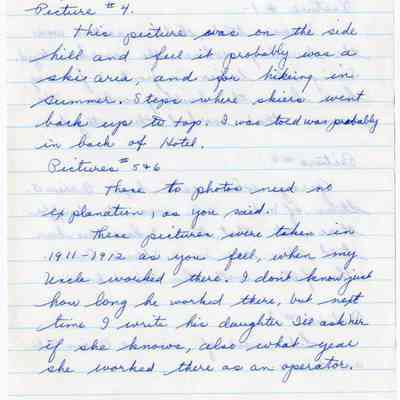 Picture #4.
This picture was on the side
hill and feel it probably was a
ski area, and for hiking in
summer. Steps where skiers went
back up to top. I was toed was probably
in back of Hotel.
Pictures #5+6
These to photos need no
explanation, as you said.
These pictures were taken in
1911-1912 as you feel, when my
Uncle worked there. I don't know just
how long he worked there, but next
time I write his daughter I'll ask her
if she knows, also what year
she worked there as an operator.